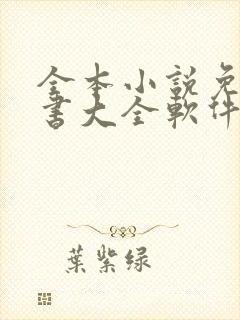 全本小説免
書大全軟件
葉紫綠